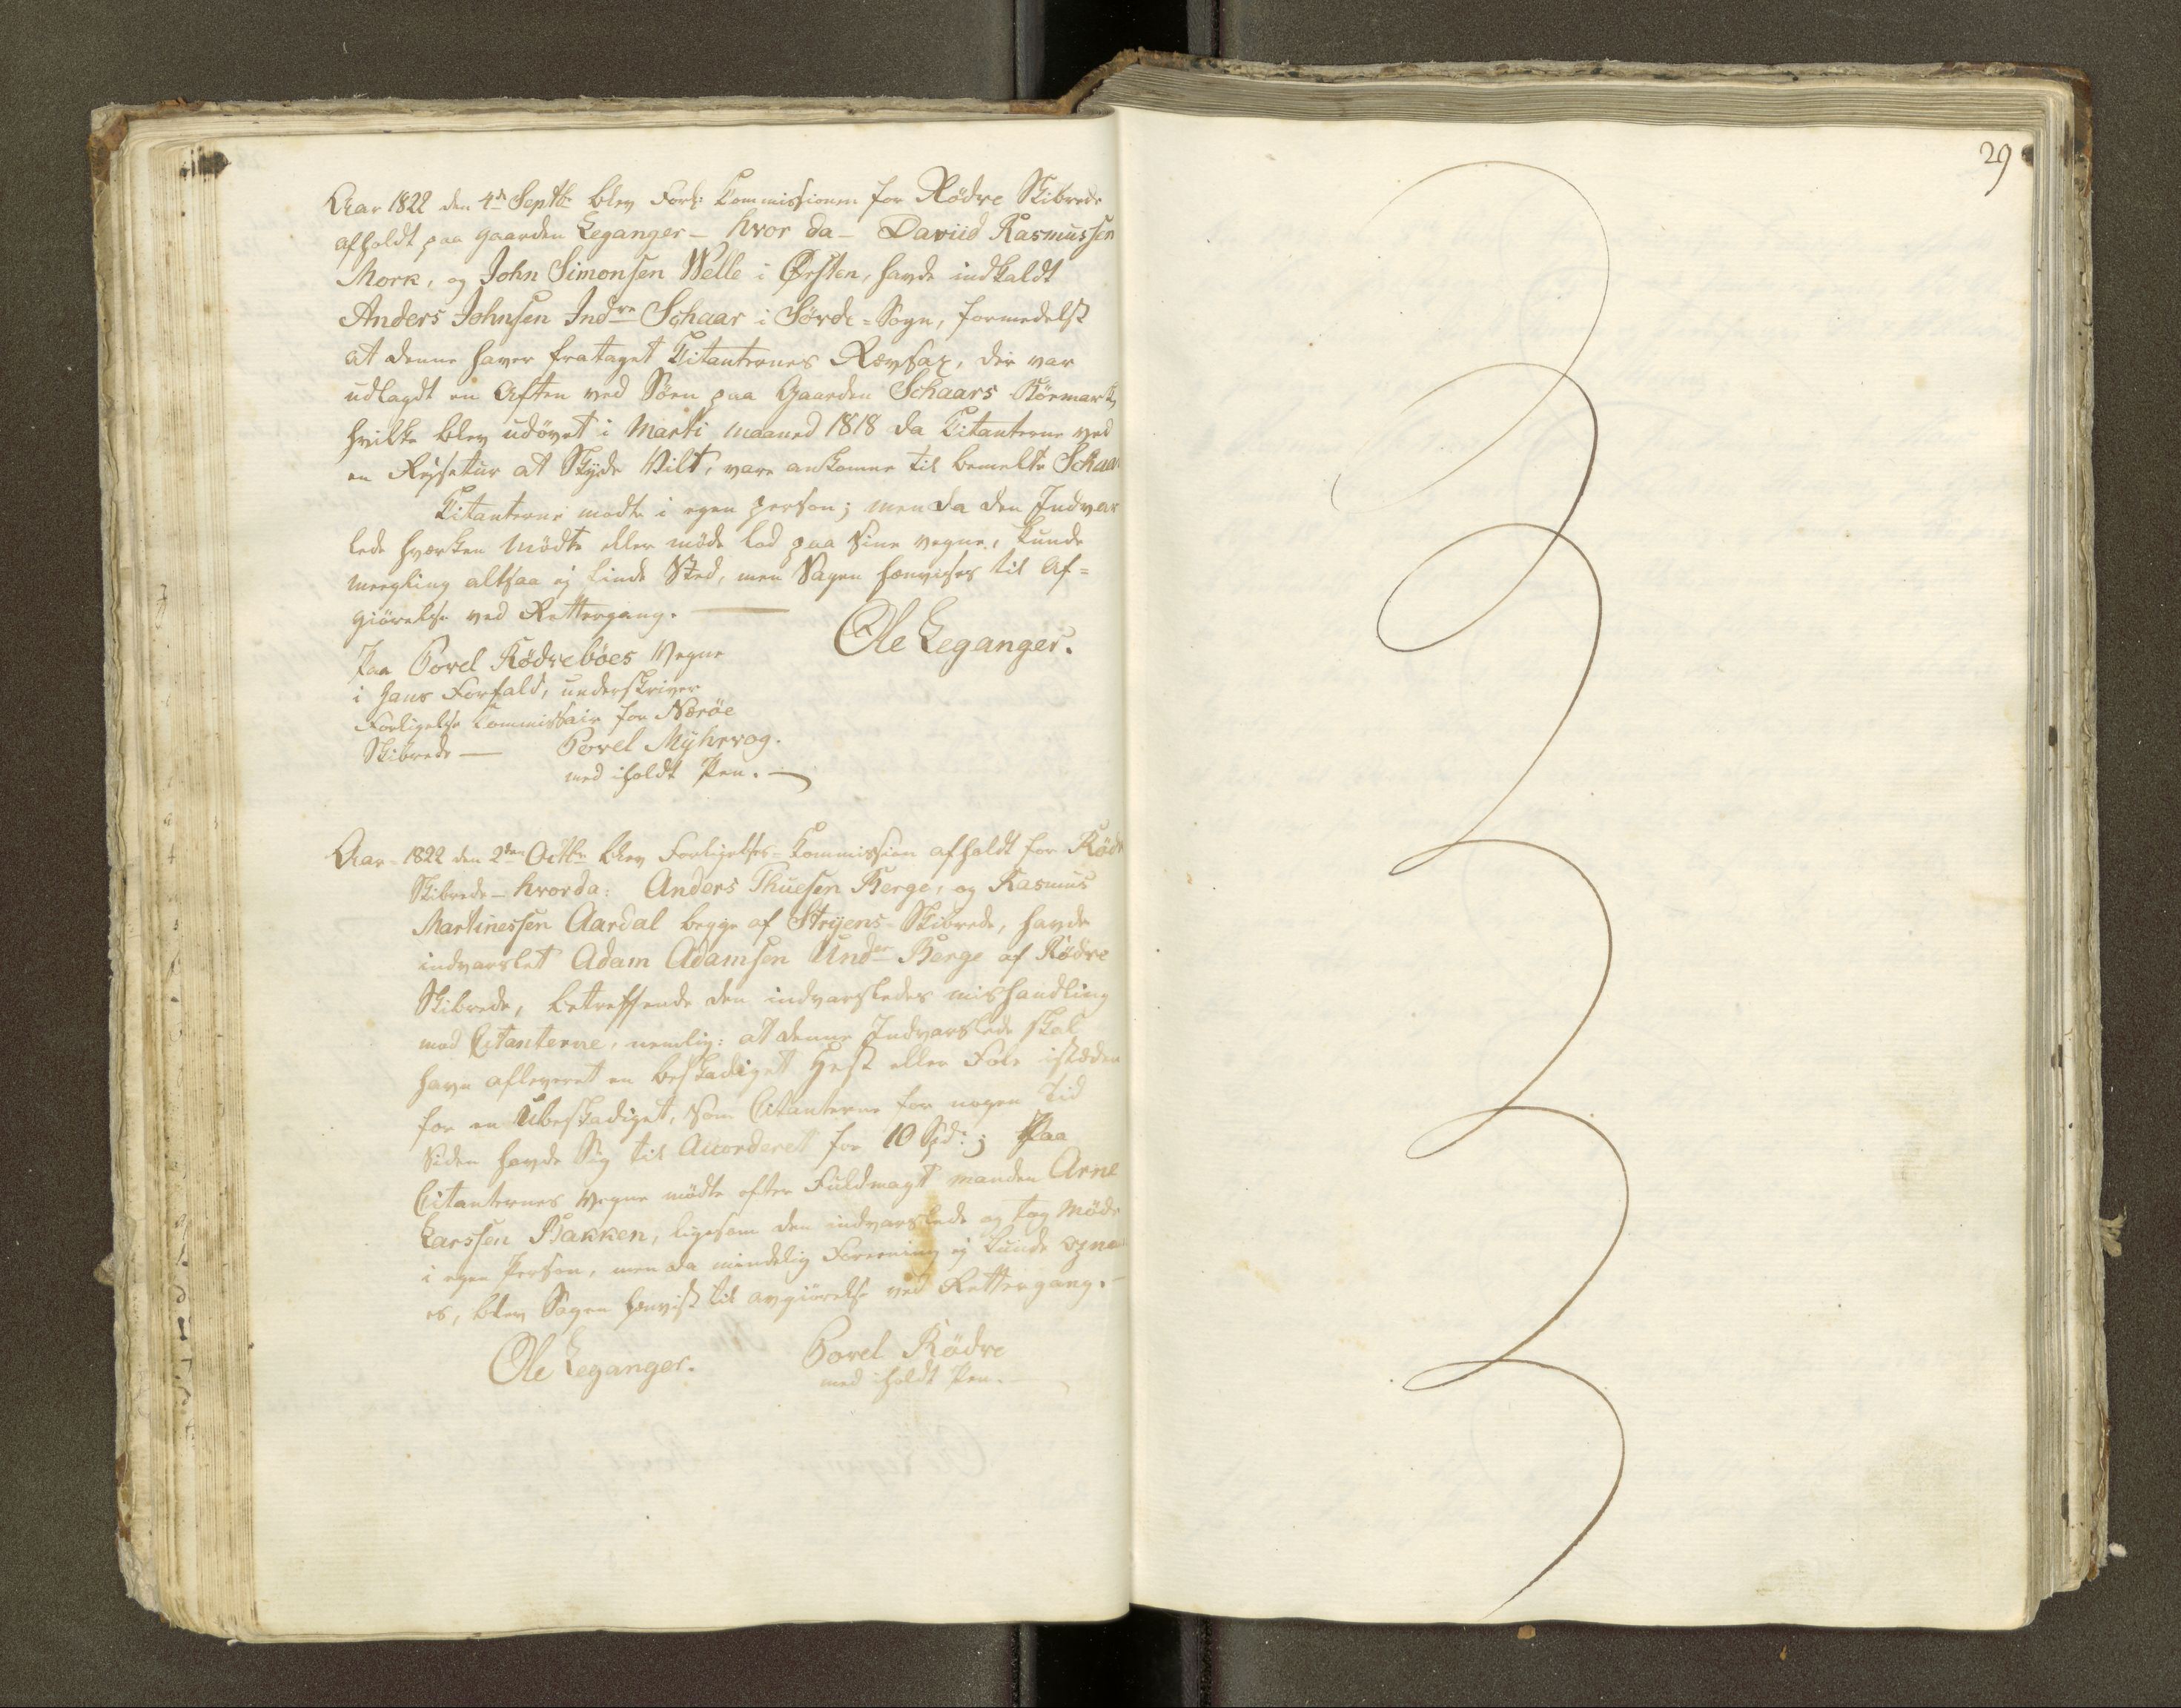 Aar 1822 den 4de Septbr blev Forl: Commissionen for Rödre Skibrede
afholdt paa gaarden Leganger – hvor da – Daviid Rasmussen
Mork, og John Simonsen Welle i Ørsten, havde indkaldt
Anders Johnsen Indre Schaar i Sørde-Sogn, formedelst
at denne haver frataget Citanternes Rævsax, der var
udlagt en Aften ved Söen paa Gaarden Schaars
hvilke blev udövet i Marti maaned 1818 da Citanterne ved
en Reysetur at Skyde Vilt, vare ankomne til bemelte Schaar
Citanterne mødte i egen person; men da den Indvar
lede hverken mödte eller møde lod paa sine vegne, kunde
megling altsaa ej finde Sted, men Sagen henvises til Af=
giörelse ved Rettergang. —
Ole Leganger.
Paa Povel Rödseböes Vegne
i hans Forfald, underskriver
Forligelses Commissair for Nærøe
Skibrede — Povel Myhrvog.
med iholdt Pen. —
Aar 1822 den 2den Octbr blev Forligelses-Commission afholdt for Rödr
Skibrede – hvorda: Anders Thuesen Berge, og Rasmus
Martinessen Aardal begge af Stryens-Skibrede, havde
indvarslet Adam Adamsen Undr Berge af Rödre
Skibrede, betreffende den indvarsledes mishandling
mod Citanterne, nemlig: at denne Indvarslede skal
have afleveret en beskadiget Hest eller Fole istæden
for en Ubeskadiget, som Citanterne for nogen tid
siden havde Sig til Accorderet for 10 Spd:; Paa
Citanternes Vegne mödte efter Fuldmagt manden Arne
Larssen Bakken, ligesom den indvarslede og tog Möde
i egen Person, men da mindelig Foreening ej kunde opna
es, blev Sagen henvist til avgiörelse ved Rettergang. –
Ole Leganger. Povel Rödre
med iholdt Pen. —
29